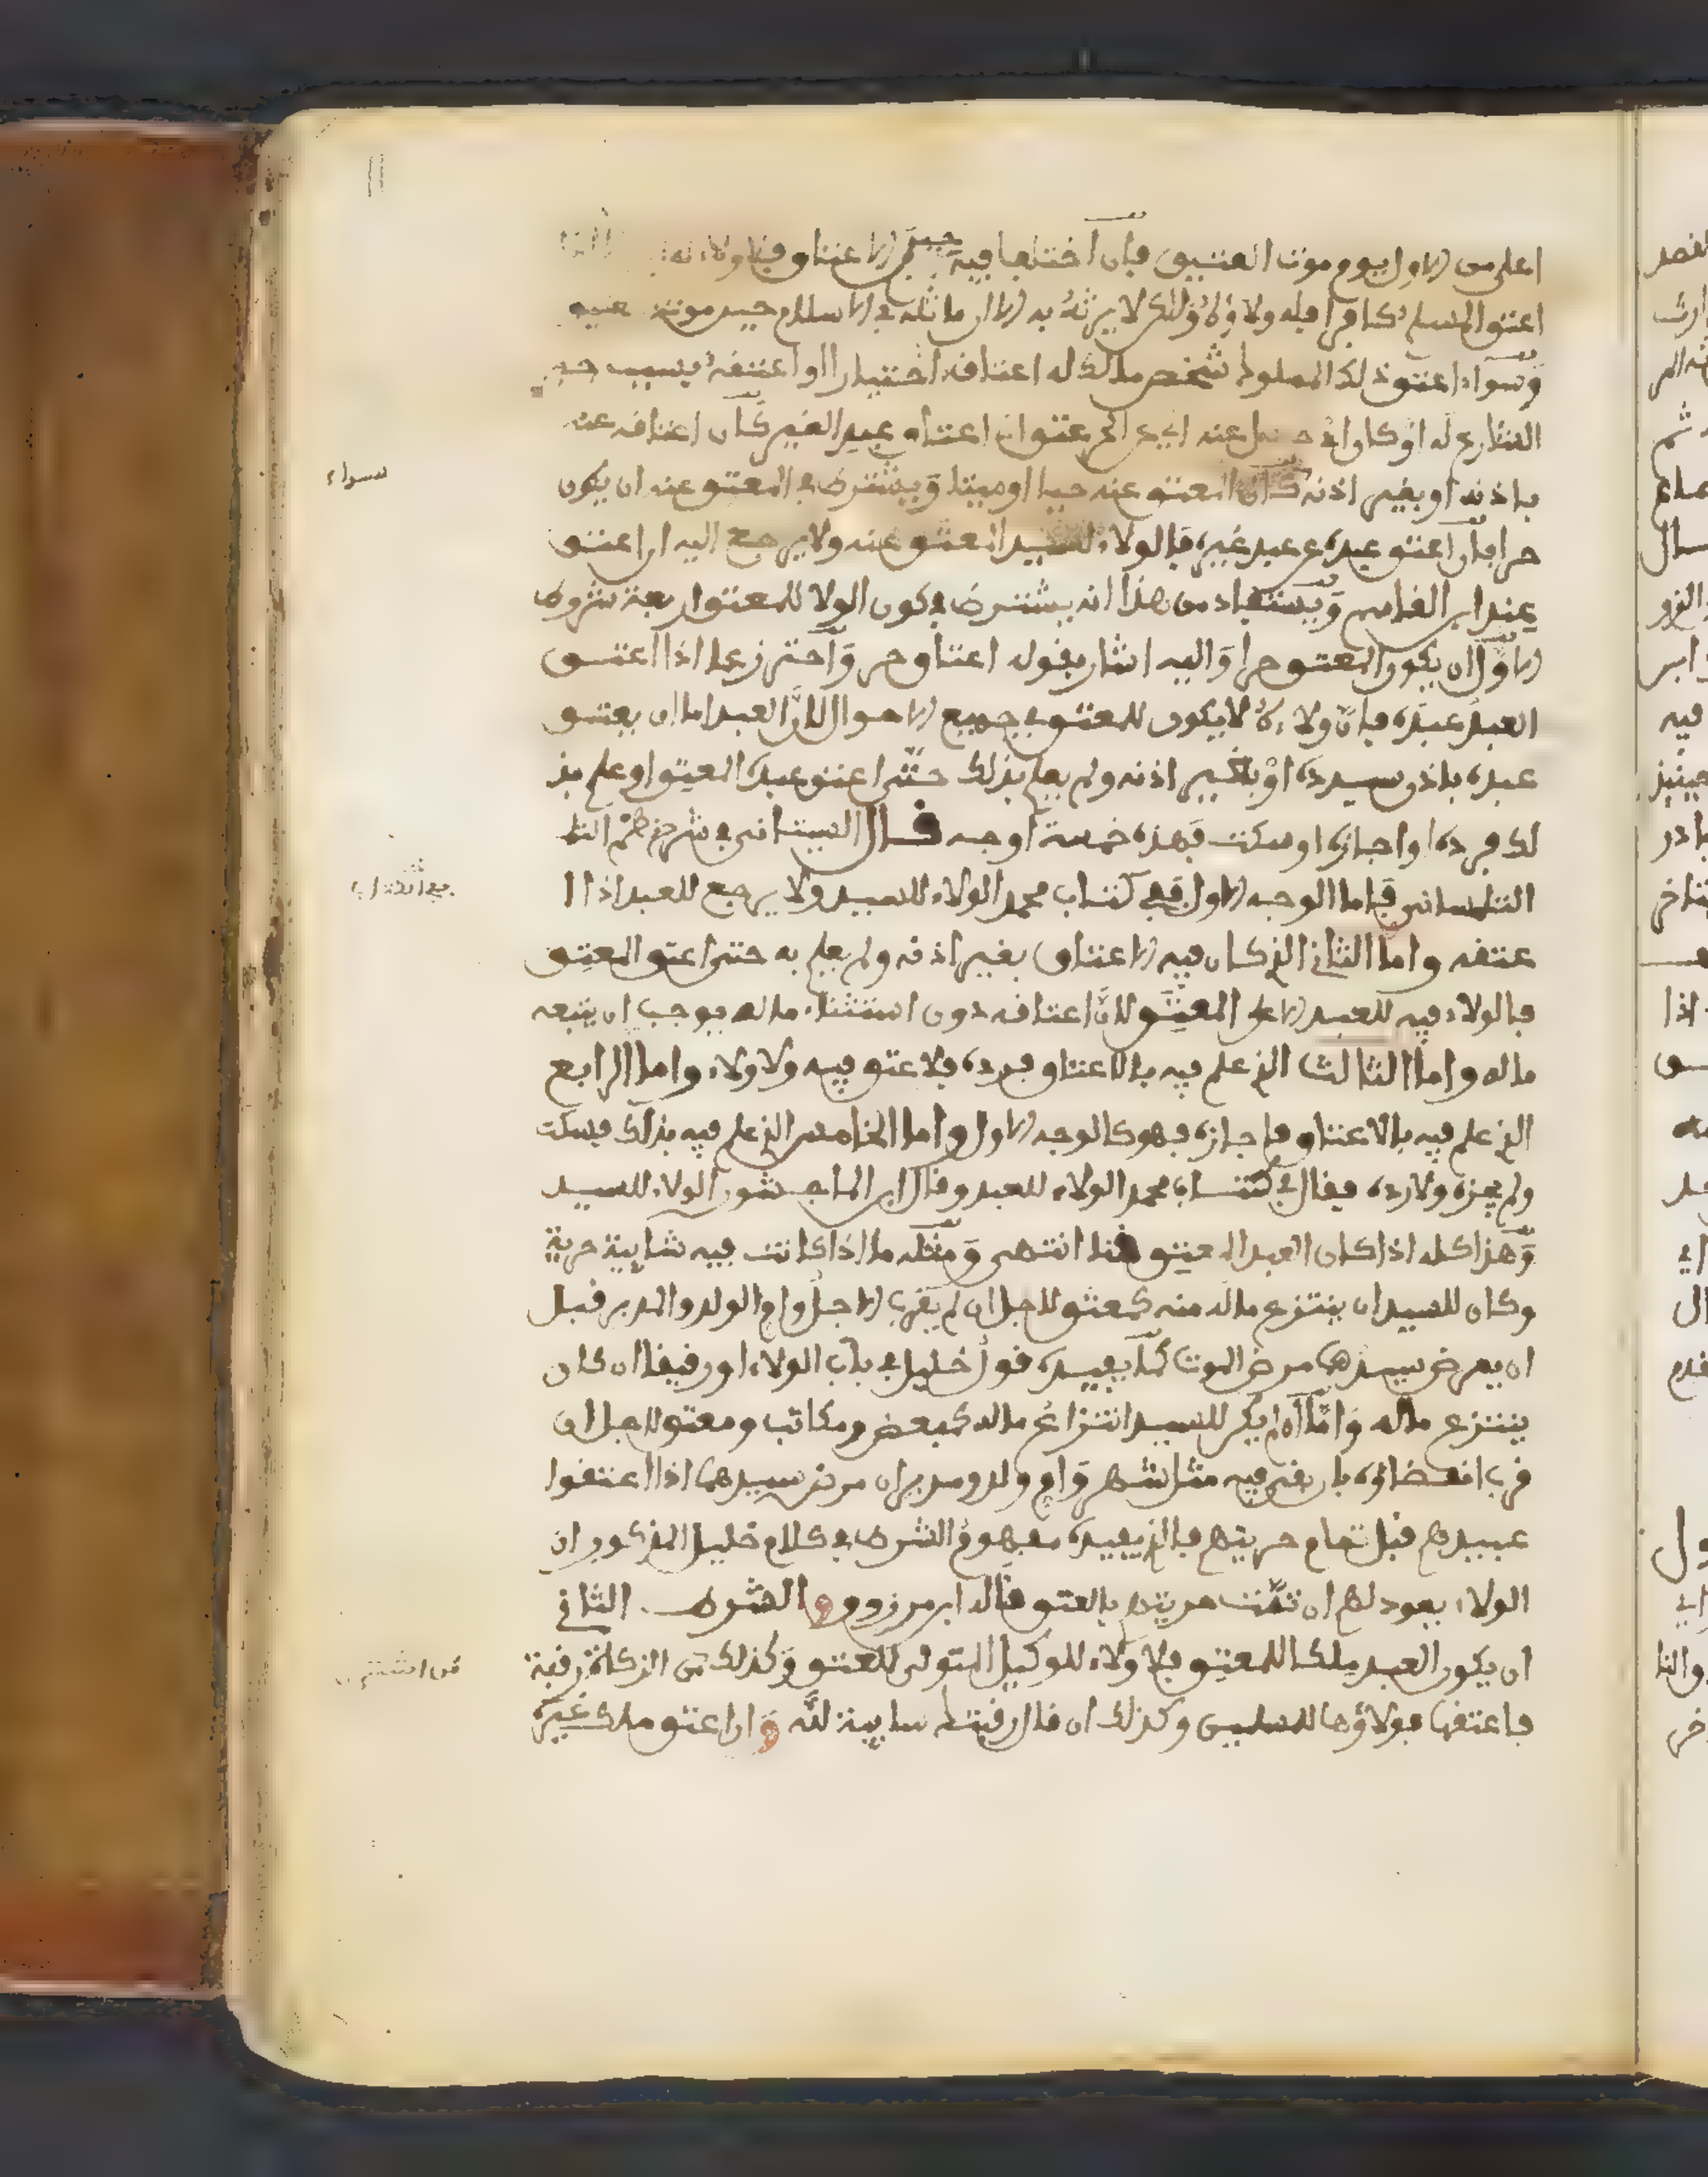 اعلى من الاول يوم موت العتيق فان اختلفا فيه حين الاعتاق فلا ولاء له
اعتق المسلم كافرا فله ولاؤه ولكن لا يرثه به الا ان ماثله في الاسلام حين موته
وسواء اعتق ذلك المملوك شخص مالك له اعتاقه اختيارا او اعتقه بسبب
الشارع له او كان اعتاق عبد الغير كان اعتاقه عنه
باذنه او بغير اذنه كان المعتق عنه حيا او ميتا ويشترط في المعتق عنه ان يكون
حرا فان اعتق عبده عن عبد غيره فالولاء للسيد المعتق عنه ولا يرجع اليه ان اعتق
عند ابن القاسم ويستفاد من هذا انه يشترط في كون الولا للمعتق اربعة شروط
الاول ان يكون المعتق حرا واليه اشار بقوله اعتاق حر واحترز عما اذا اعتق
العبد عبده فان ولاءه لا يكون للمعتق في جميع الاحوال لان العبد اما ان يعتق
عبده باذن سيده او بغير اذنه ولم يعلم بذلك حتى اعتق عبده العتيق او علم بذ
لك فرده او اجازه او سكت فهذه خمسة اوجه قال السيتاني في شرح نظم
التلمساني فاما الوجه الاول ففي كتاب محمد الولاء للسيد ولا يرجع للعبد اذا ا
عتقه واما الثاني الذي كان فيه الاعتاق بغير اذنه ولم يعلم به حتى اعتق المعتق
فالولاء فيه للعبد الاعلى المعتق لان اعتاقه دون استثناء ماله يوجب ان يتبعه
ماله واما الثالث الذي علم فيه بالاعتاق فرده فلا عتق فيه ولا ولاء واما الرابع
الذي علم فيه بالاعتاق فاجازه فهو كالوجه الاول واما الخامس الذي علم فيه بذلك فسكت
ولم يجزه ولا رده فقال في كتاب محمد الولاء للعبد وقال ابن الماجشون الولاء للسيد
وهذا كله اذا كان العبد المعتق قنا انتهى ومثله ما اذا كانت فيه شايبة حرية
وكان للسيد ان ينتزع ماله منه كمعتق لاجل ان لم يقرب الاجل وام الولد والمدبر قبل
ان يمرض سيدهما مرض الموت كما يفيده قول خليل في باب الولاء او رقيقا ان كان
ينتزع ماله واما ان لم يكن للسيد انتزاع ماله كمبعض ومكاتب ومعتق لاجل ان
قرب انقضاؤه بان بقي فيه مثل شهر وام ولد ومدبر ان مرض سيدهما اذا اعتقوا
عبيدهم قبل تمام حريتهم فالذي يفيده مفهوم الشرط في كلام خليل المذكور ان
الولاء يعود لهم ان تمت حريتهم بالعتق قاله ابن مرزوق و الشرط الثاني
ان يكون العبد ملكا للمعتق فلا ولاء للوكيل المتولى للعتق وكذلك من الزكاة رقبة
فاعتقها فولاؤها للمسلمين وكذلك ان قال رقبتك سايبة لله و ان اعتق ملك غيره
سواء